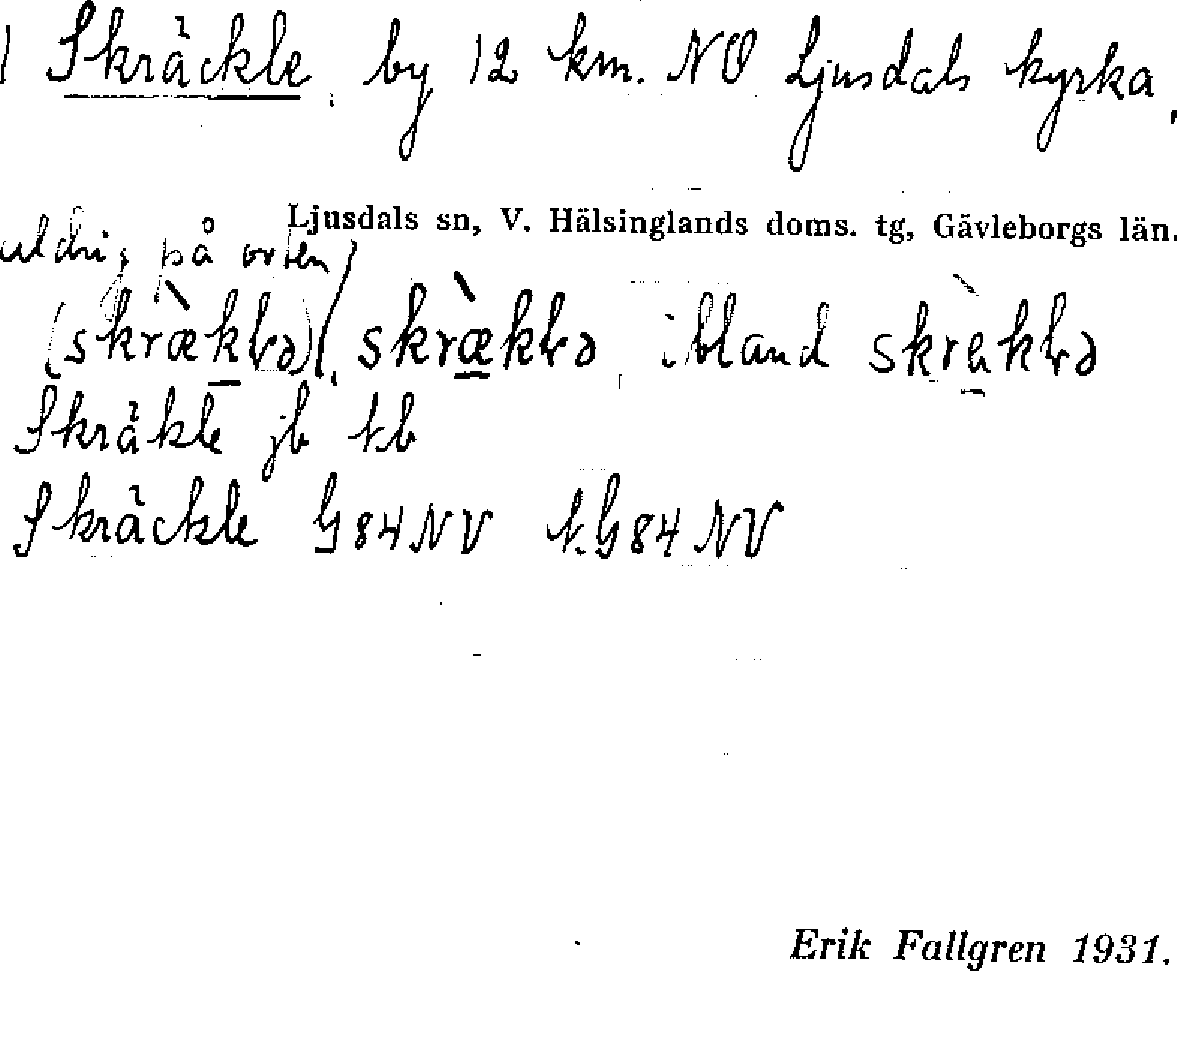 Skräckle, by 12 km. NO Ljusdals kyrka.
Ljusdals sn, V. Hälsinglands doms. tg, Gävleborgs län.
aldrig på orten
(skræ̀klə) skræ̀klə ibland skràklə
Skräkle jb kb
Skräckle G84NV k.G84NV
Erik Fallgren 1931.